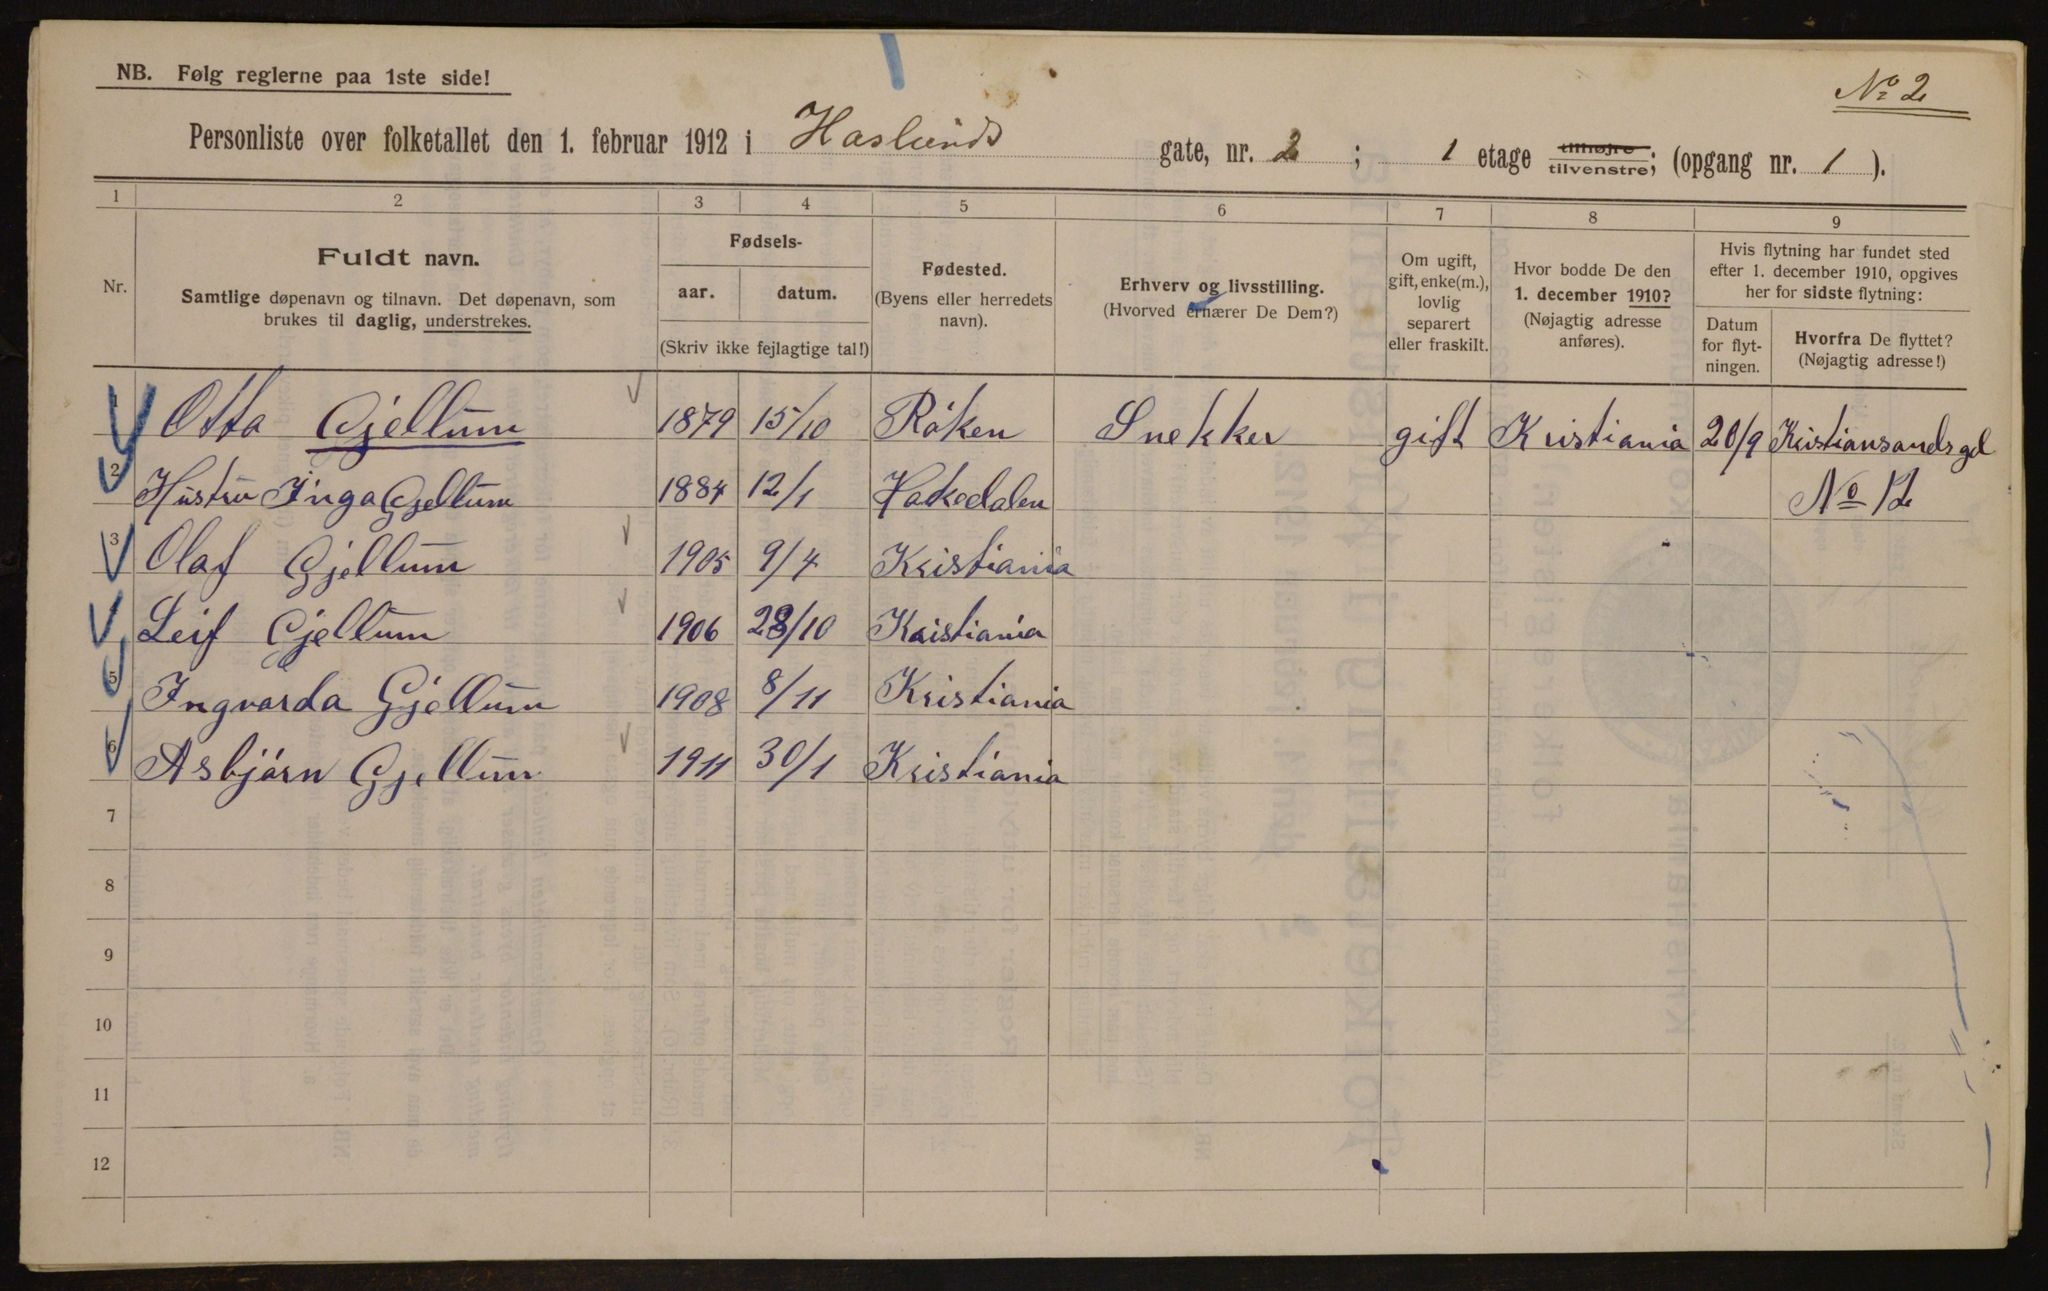 NB. Følg reglerne paa 1ste side!
No 2
Personliste over folketallet den 1. februar 1912 i Haslunds gate, nr. 2 ; 1 etage tilhøjre tilvenstre; (opgang nr. 1 ).
1 2 3 4 5 6 7 8 9
Nr.
Fuldt navn.
Samtlige døpenavn og tilnavn. Det døpenavn, som
brukes til daglig, understrekes.
Fødsels-
aar. datum.
(Skriv ikke fejlagtige tal!)
Fødested.
(Byens eller herredets
navn).
Erhverv og livsstilling.
(Hvorved ernærer De Dem?)
Om ugift,
gift, enke(m.),
lovlig
separert
eller fraskilt.
Hvor bodde De den
1. december 1910?
(Nøjagtig adresse
anføres).
Hvis flytning har fundet sted
efter 1. december 1910, opgives
her for sidste flytning:
Datum
for flyt-
ningen.
Hvorfra De flyttet?
(Nøjagtig adresse!)
1 Otto Gjellum 1879 15/10 Røken Snekker gift Kristiania 20/9 Kristiansandsgd
2 Hustru Inga Gjellum 1884 12/1 Hakedalen No 12
3 Olaf Gjellum 1905 9/4 Kristiania
Leif Gjellum 1906 28/10 Kristiania
5 Ingvarda Gjellum 1908 8/11 Kristiania
6 Asbjørn Gjellum 1911 30/1 Kristiania
7
8
9
10
11
12